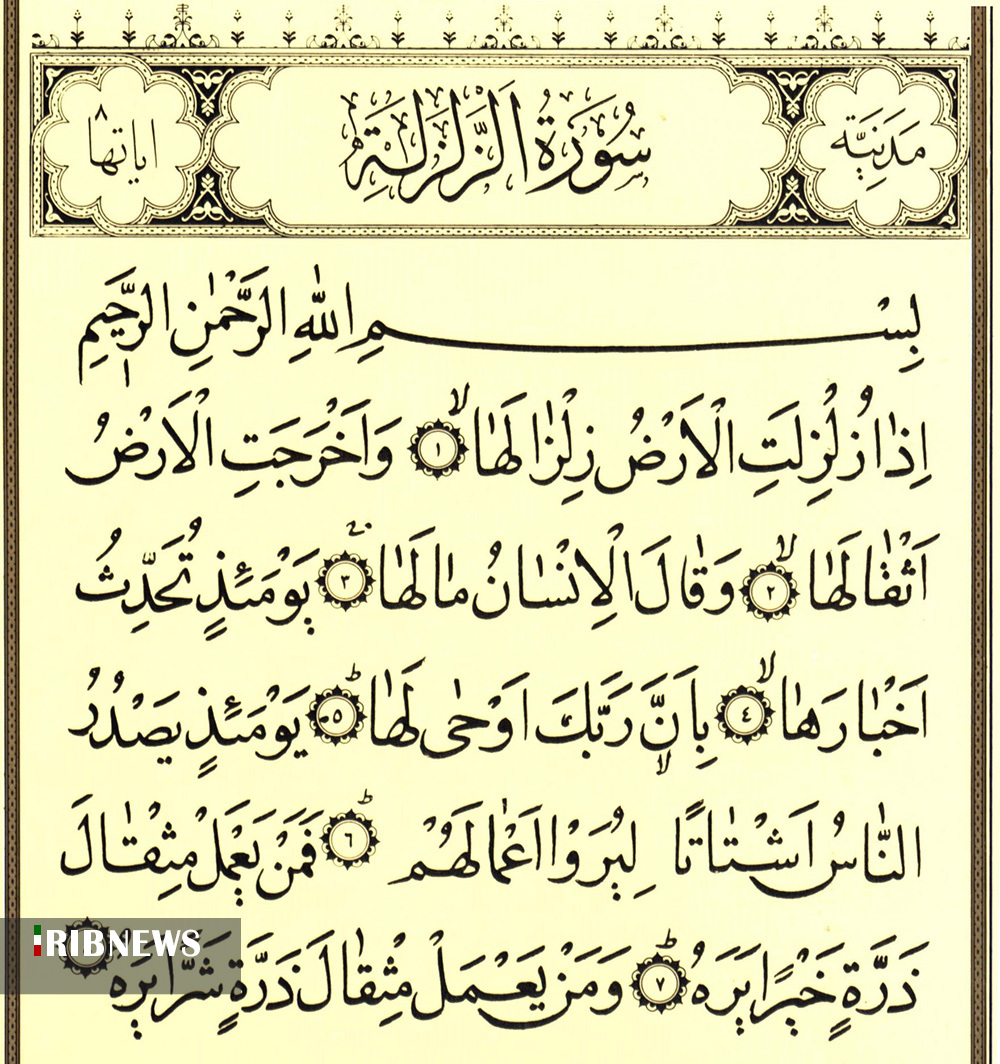 مَدَنِيَّة سُورَةُ الزَّلْزَلَةِ اياتها ٨
بِسْمِ اللّٰهِ الرَّحْمٰنِ الرَّحيمِ
اِذٰا زُلْزِلَتِ الْاَرْضُ زِلْزٰالَهٰا ﴿١﴾ وَاَخْرَجَتِ الْاَرْضُ
اَثْقٰالَهٰا ﴿٢﴾ وَقٰالَ الْاِنْسٰانُ مٰالَهٰا ﴿٣﴾ يَوْمَئِذٍ تُحَدِّثُ
اَخْبٰارَهٰا ﴿٤﴾ بِاَنَّ رَبَّكَ اَوْحٰى لَهٰا ﴿٥﴾ يَوْمَئِذٍ يَصْدُرُ
النّٰاسُ اَشْتٰاتًا لِيُرَوْا اَعْمٰالَهُمْ ﴿٦﴾ فَمَنْ يَعْمَلْ مِثْقٰالَ
ذَرَّةٍ خَيْرًا يَرَهُ ﴿٧﴾ وَمَنْ يَعْمَلْ مِثْقٰالَ ذَرَّةٍ شَرًّا يَرَهُ
IRIBNEWS